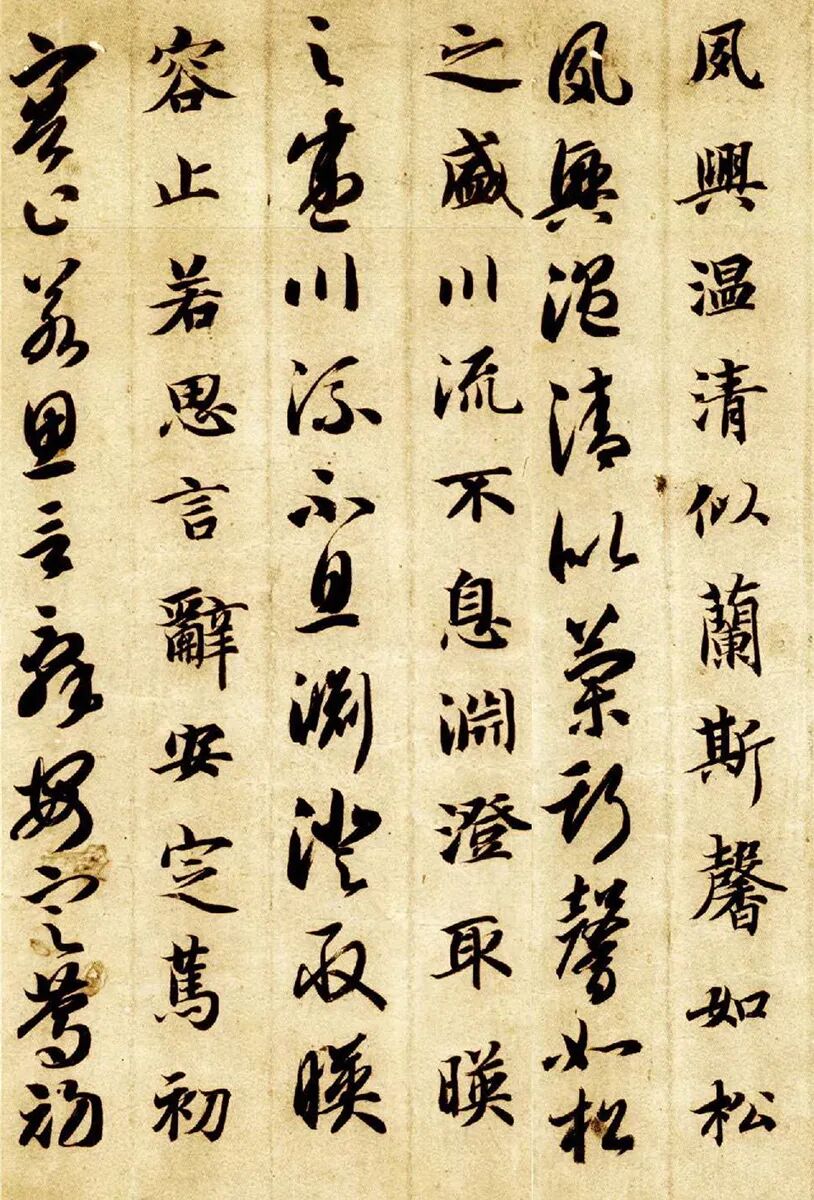 夙興温清似蘭斯馨如松
夙興温清似蘭斯馨如松
之盛川流不息淵澄取暎
之盛川流不息淵澄取暎
容止若思言辭安定篤初
容止若思言辭安定篤初